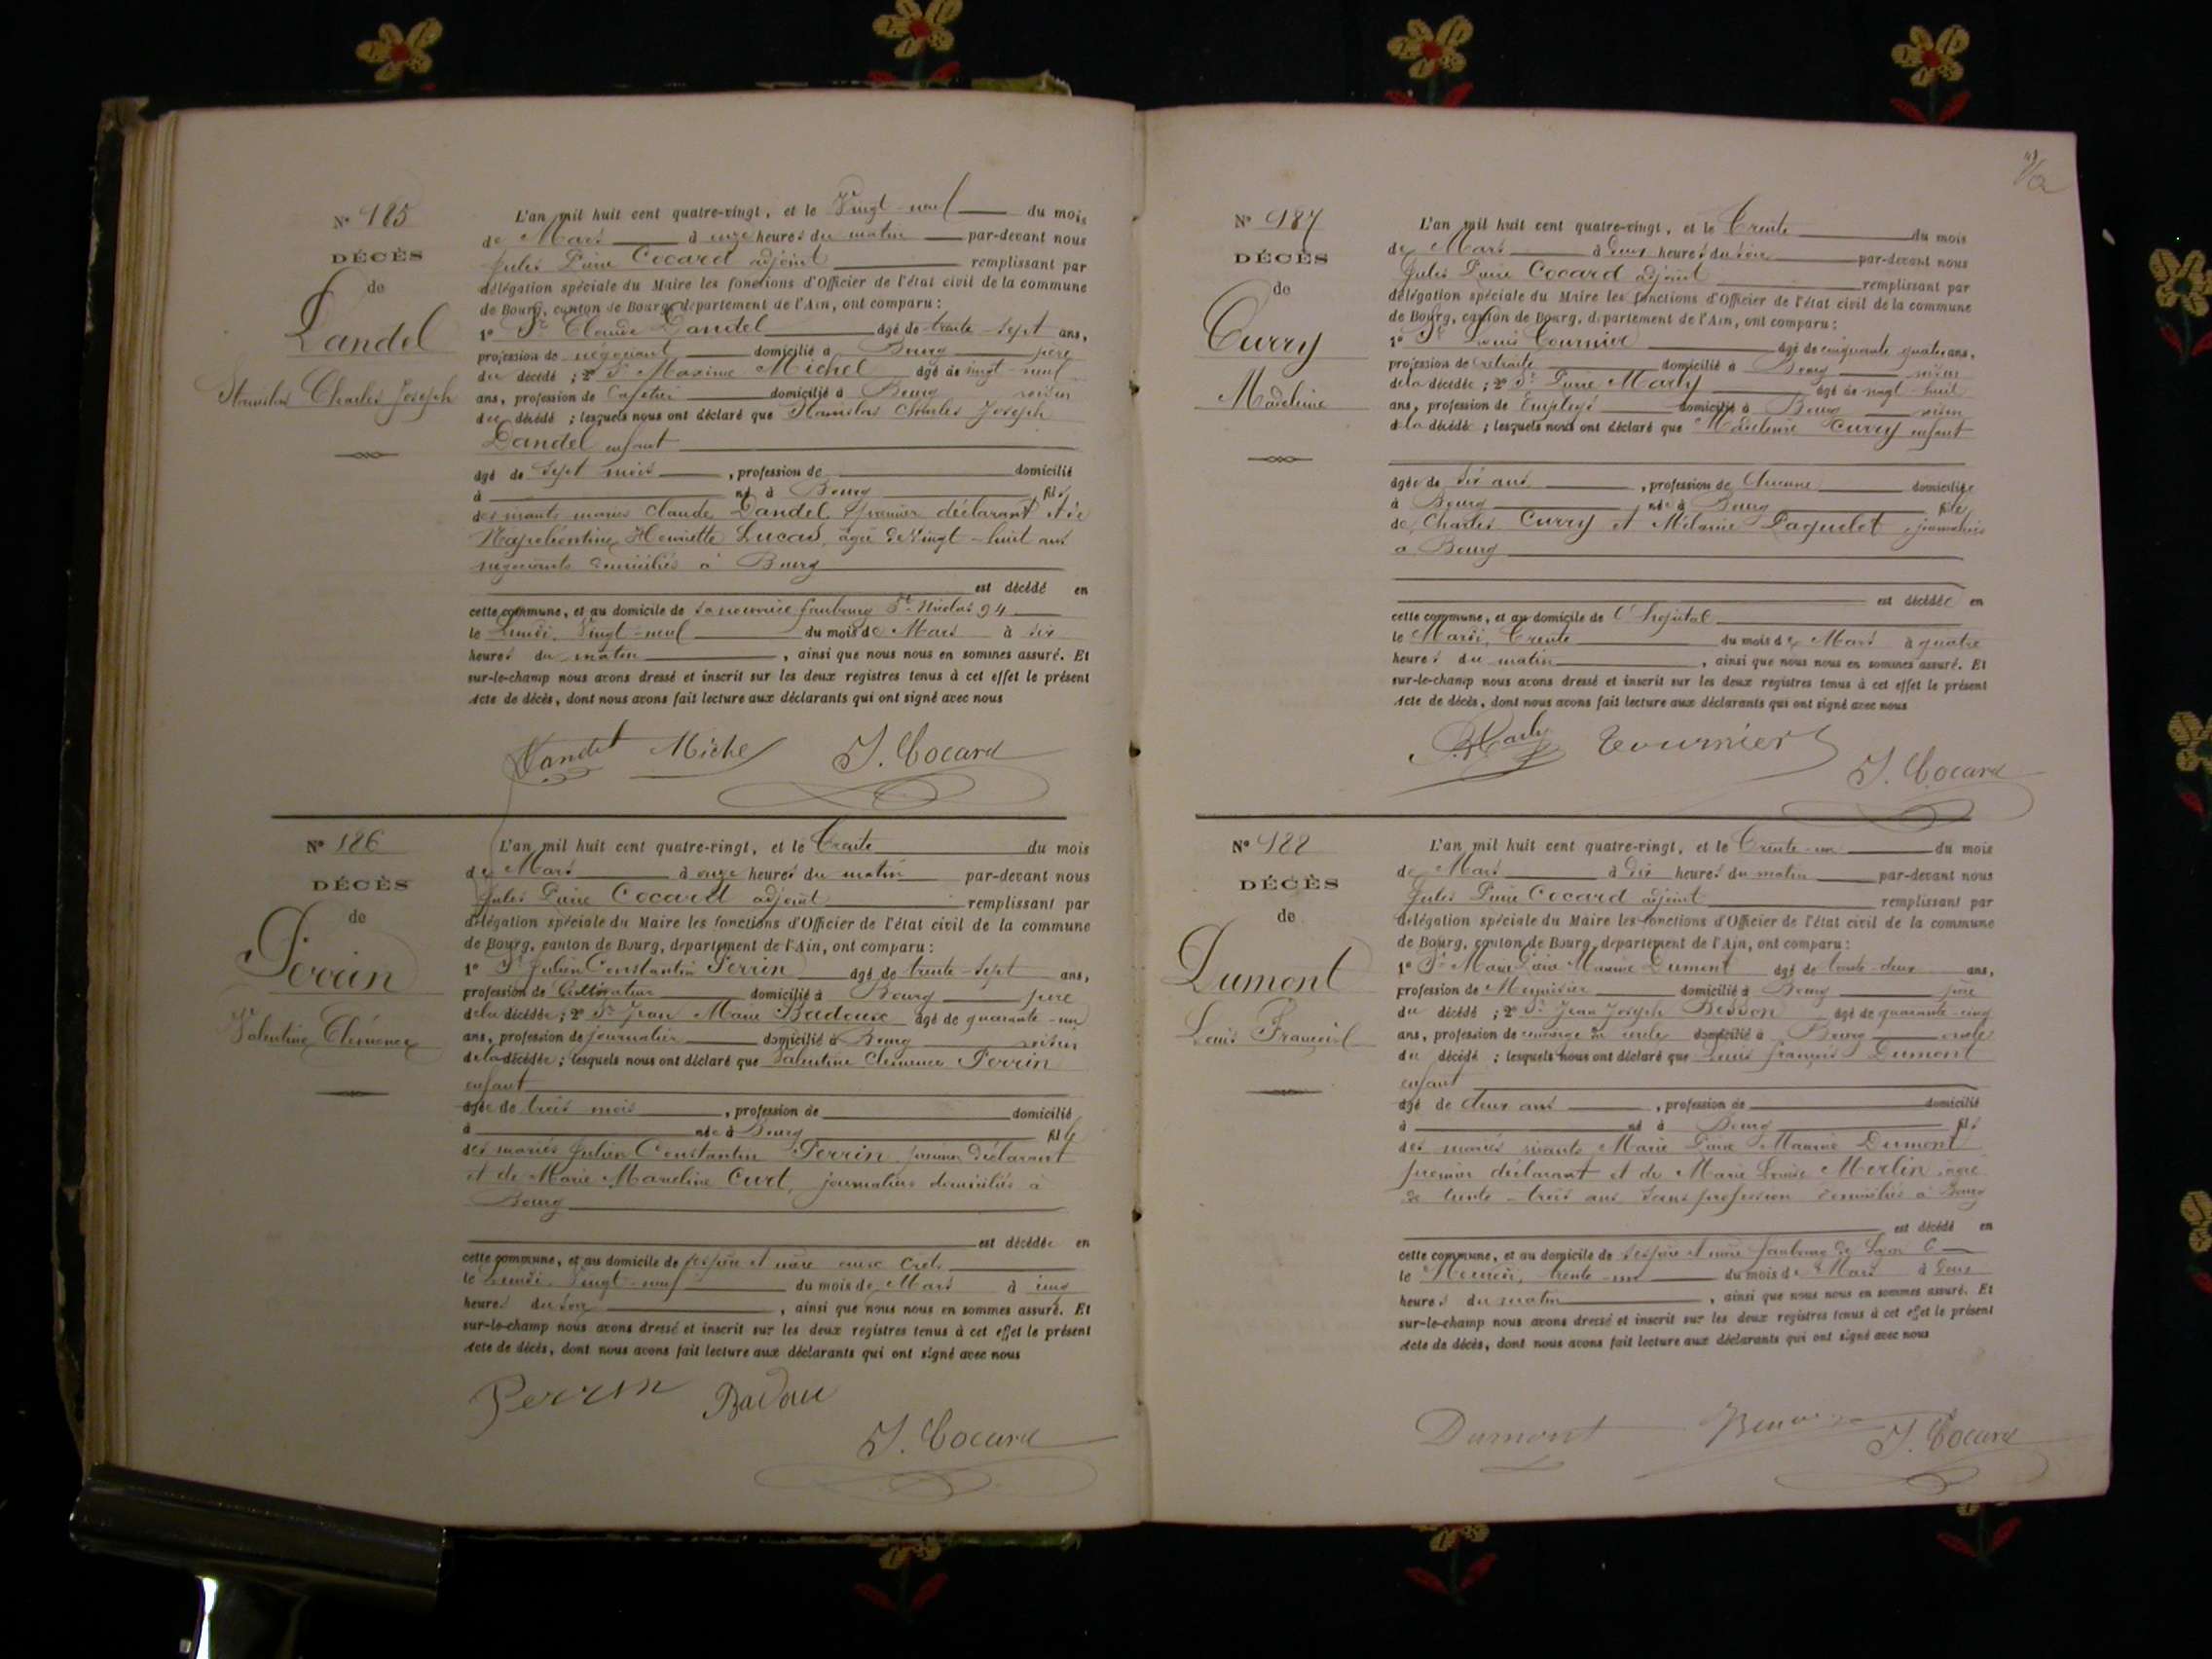 N° 185
DÉCÈS
de
Landel
Stanislas Charles Joseph
L'an mil huit cent quatre-vingt, et le Vingt-neuf du mois
de Mars à onze heures du matin par-devant nous
Jules Pierre Cocard adjoint remplissant par
délégation spéciale du Maire les fonctions d'Officier de l'état civil de la commune
de Bourg, canton de Bourg, département de l'Ain, ont comparu :
1° Sr Claude Landel âgé de trente-sept ans,
profession de négociant domicilié à Bourg père
du décédé ; 2° Sr Maxime Michel âgé de vingt-neuf
ans, profession de Cafetier domicilié à Bourg voisin
du décédé ; lesquels nous ont déclaré que Stanislas Charles Joseph
Landel enfant
âgé de Sept mois , profession de domicilié
à né à Bourg fils
des vivants mariés Claude Landel, premier déclarant et de
Henriette Lucas, âgée de Vingt-huit ans
négociants domiciliés à Bourg
est décédé en
cette commune, et au domicile de sa nourrice faubourg St Nicolas 94
le Lundi, Vingt-neuf du mois de Mars à six
heures du matin , ainsi que nous nous en sommes assuré. Et
sur-le-champ nous avons dressé et inscrit sur les deux registres tenus à cet effet le présent
Acte de décès, dont nous avons fait lecture aux déclarants qui ont signé avec nous
Landel Michel J. Cocard
N° 186
DÉCÈS
de
Perrin
Valentine Clémence
L'an mil huit cent quatre-vingt, et le Trente du mois
de Mars à onze heures du matin par-devant nous
Jules Pierre Cocard adjoint remplissant par
délégation spéciale du Maire les fonctions d'Officier de l'état civil de la commune
de Bourg, canton de Bourg, département de l'Ain, ont comparu :
1° Sr Julien Constantin Perrin âgé de trente-sept ans,
profession de Cultivateur domicilié à Bourg père
de la décédée ; 2° Sr Jean Marie Badoux âgé de quarante-un
ans, profession de journalier domicilié à Bourg voisin
de la décédée ; lesquels nous ont déclaré que Valentine Clémence Perrin
enfant
âgée de trois mois , profession de domicilié
à née à Bourg fille
des mariés Julien Constantin Perrin premier déclarant
et de Marie Curt, journaliers domiciliés à
Bourg
est décédée en
cette commune, et au domicile de ses père et mère aux Crêts
le Lundi, Vingt-neuf du mois de Mars à cinq
heures du soir , ainsi que nous nous en sommes assuré. Et
sur-le-champ nous avons dressé et inscrit sur les deux registres tenus à cet effet le présent
Acte de décès, dont nous avons fait lecture aux déclarants qui ont signé avec nous
Perrin Badoux
J. Cocard
N° 187
DÉCÈS
de
Curry
Madeleine
L'an mil huit cent quatre-vingt, et le Trente du mois
de Mars à deux heures du soir par-devant nous
Jules Pierre Cocard adjoint remplissant par
délégation spéciale du Maire les fonctions d'Officier de l'état civil de la commune
de Bourg, canton de Bourg, département de l'Ain, ont comparu :
1° Sr Louis Tournier âgé de cinquante quatre ans,
profession de retraité domicilié à Bourg voisin
de la décédée ; 2° Sr Pierre Marly âgé de vingt-huit
ans, profession de Employé domicilié à Bourg voisin
de la décédée ; lesquels nous ont déclaré que Madeleine Curry enfant
âgée de dix ans , profession de Aucune domiciliée
à Bourg née à Bourg fille
de Charles Curry et Mélanie Paquelet, journaliers
à Bourg
est décédée en
cette commune, et au domicile de l'hôpital
le Mardi, Trente du mois de Mars à quatre
heures du matin , ainsi que nous nous en sommes assuré. Et
sur-le-champ nous avons dressé et inscrit sur les deux registres tenus à cet effet le présent
Acte de décès, dont nous avons fait lecture aux déclarants qui ont signé avec nous
Marly Tournier
J. Cocard
N° 188
DÉCÈS
de
Dumont
Louis François
L'an mil huit cent quatre-vingt, et le Trente-un du mois
de Mars à dix heures du matin par-devant nous
Jules Pierre Cocard adjoint remplissant par
délégation spéciale du Maire les fonctions d'Officier de l'état civil de la commune
de Bourg, canton de Bourg, département de l'Ain, ont comparu :
1° Sr Marie Dumont âgé de trente-deux ans,
profession de Menuisier domicilié à Bourg père
du décédé ; 2° Sr Jean Joseph Besson âgé de quarante-cinq
ans, profession de concierge du cercle domicilié à Bourg oncle
du décédé ; lesquels nous ont déclaré que Louis François Dumont
enfant
âgé de deux ans , profession de domicilié
à né à Bourg fils
des mariés vivants Marie Dumont
premier déclarant et de Marie Louise Merlin, âgée
de trente-trois ans sans profession domiciliés à Bourg
est décédé en
cette commune, et au domicile de ses père et mère faubourg de Lyon 6
le Mercredi, trente-un du mois de Mars à deux
heures du matin , ainsi que nous nous en sommes assuré. Et
sur-le-champ nous avons dressé et inscrit sur les deux registres tenus à cet effet le présent
Acte de décès, dont nous avons fait lecture aux déclarants qui ont signé avec nous
Dumont J. Cocard